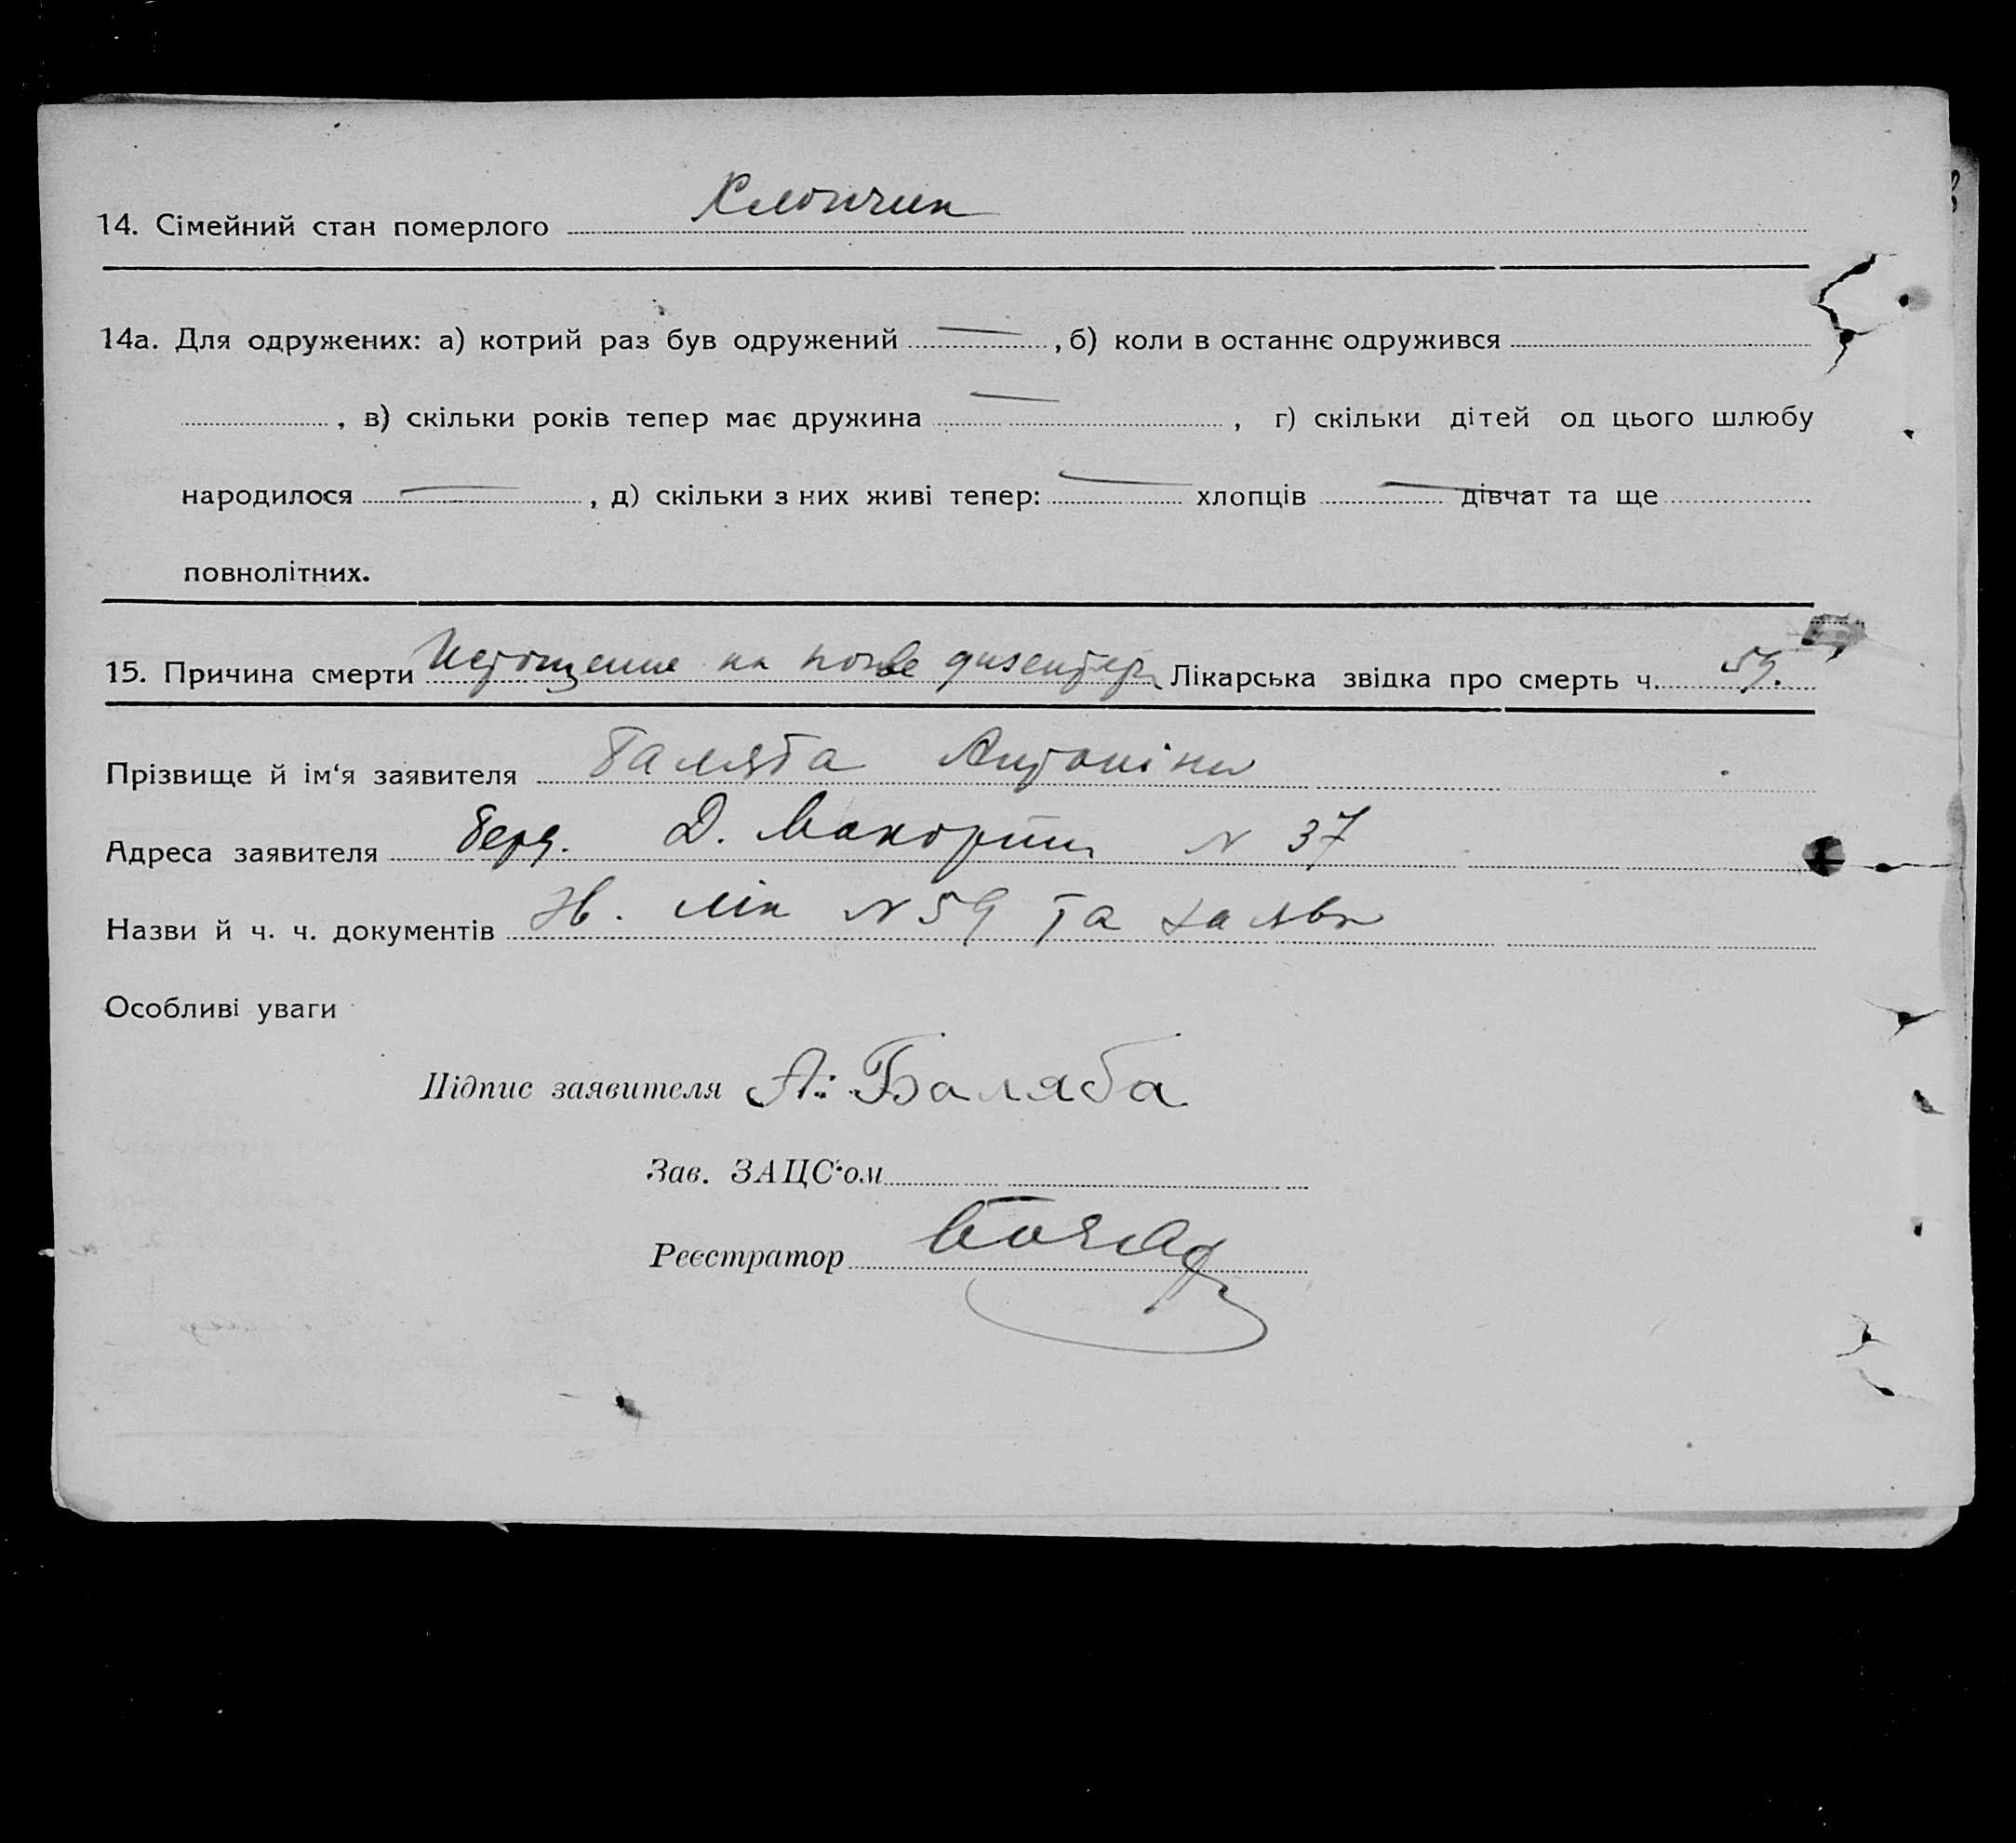 14. Сімейний стан померлого Хлопчик
14а. Для одружених: а) котрий раз був одружений —, б) коли в останнє одружився
, в) скільки років тепер має дружина — , г) скільки дітей од цього шлюбу
народилося — , д) скільки з них живі тепер: — хлопців — дівчат та ще
повнолітних.
15. Причина смерти Истощение на почве дизентер Лікарська звідка про смерть ч. 59.
Прізвище й ім‘я заявителя Баляба Антоніна
Адреса заявителя Берд. Д. Макорти N 37
Назви й ч. ч. документів лік N 59 та заява
Особливі уваги
Підпис заявителя А. Баляба
Зав. ЗАЦС‘ом
Реєстратор